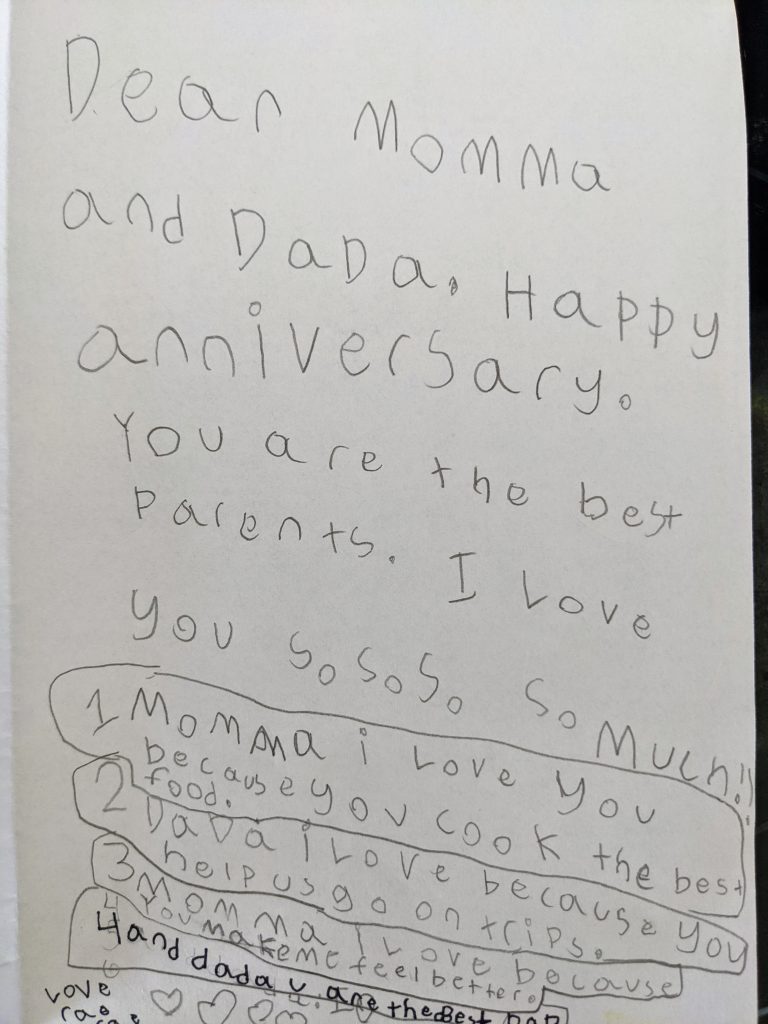 Dear Momma
and DaDa. Happy
anniversary.
You are the best
parents. I Love
you so so so so much!!
1 Momma i love you
because you cook the best
food.
2 DaDa i love because you
help us go on trips.
3 Momma i love because
you make me feel better.
4 and dada u are the Best
Love
rae